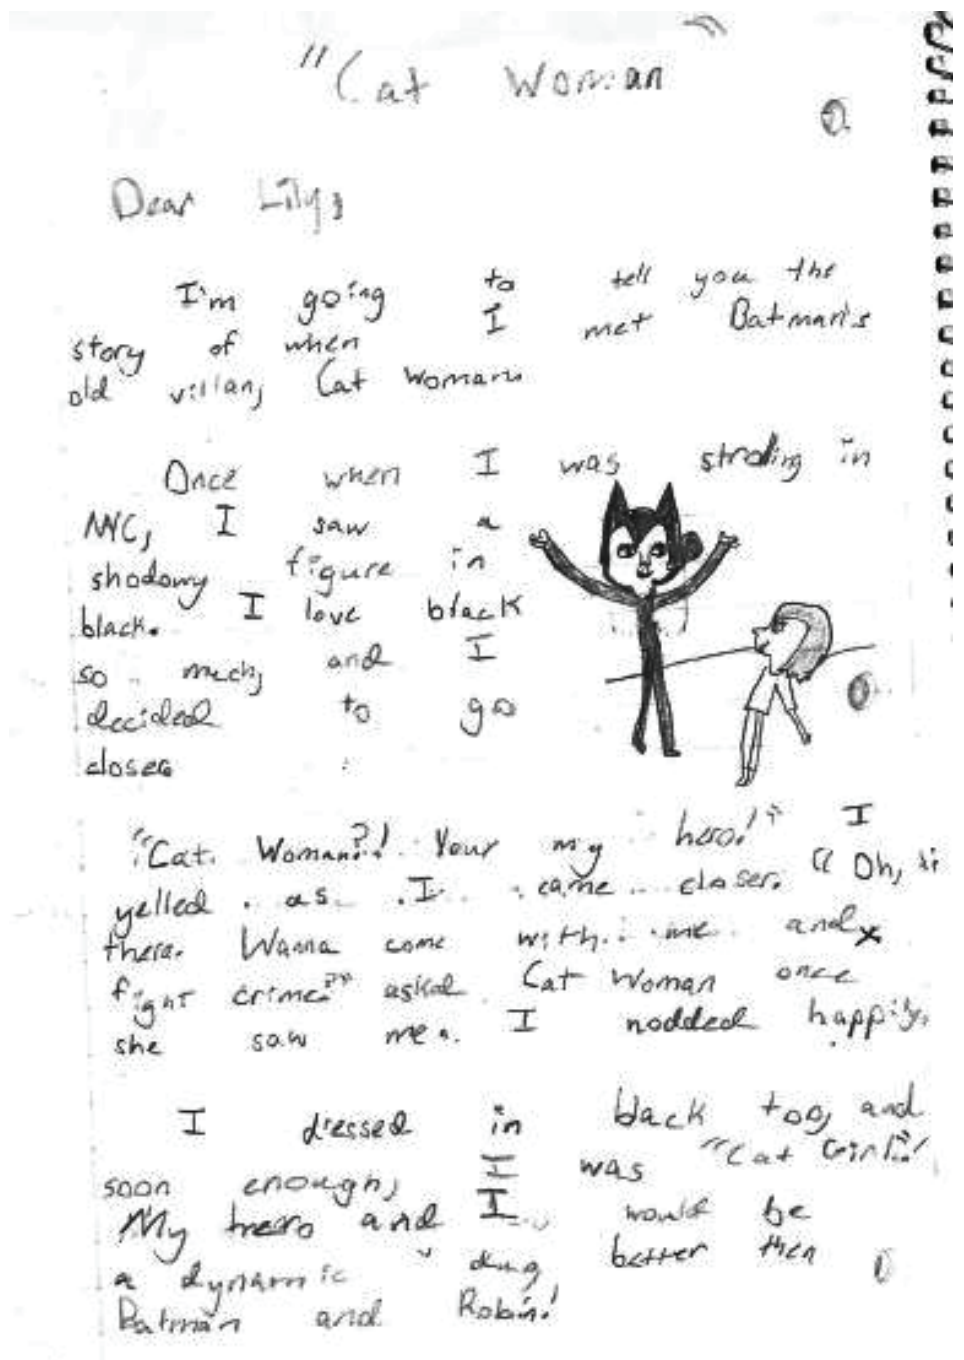 "Cat Woman"
Dear Lily,
I'm going to tell you the
story of when I met Batman's
old villan, Cat Woman.
Once when I was stroling in
NYC, I saw a
shodowy figure in
black. I love black
so much, and I
decided to go
closer.
"Cat Woman?! Your my hero!" I
yelled as I came closer. "Oh, hi
there. Wanna come with me and
fight crime?" asked Cat Woman once
she saw me. I nodded happily.
I dressed in black too, and
soon enough, I was "Cat Girl"!
My hero and I would be
a dynamic better then
Batman and Robin!